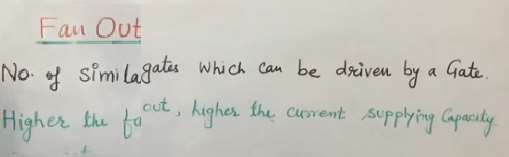 Fan Out
No. of similagates which can be driven by a Gate.
Higher the fa out, higher the current supplying Capacity